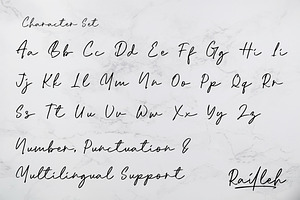 Character Set
Aa Bb Cc Dd Ee Ff Gg Hi Ii
Jj Kk Ll Mm Nn Oo Pp Qq Rr
Ss Tt Uu Vv Ww Xx Yy Zz
Number, Punctuation &
Multilingual Support
Railleh